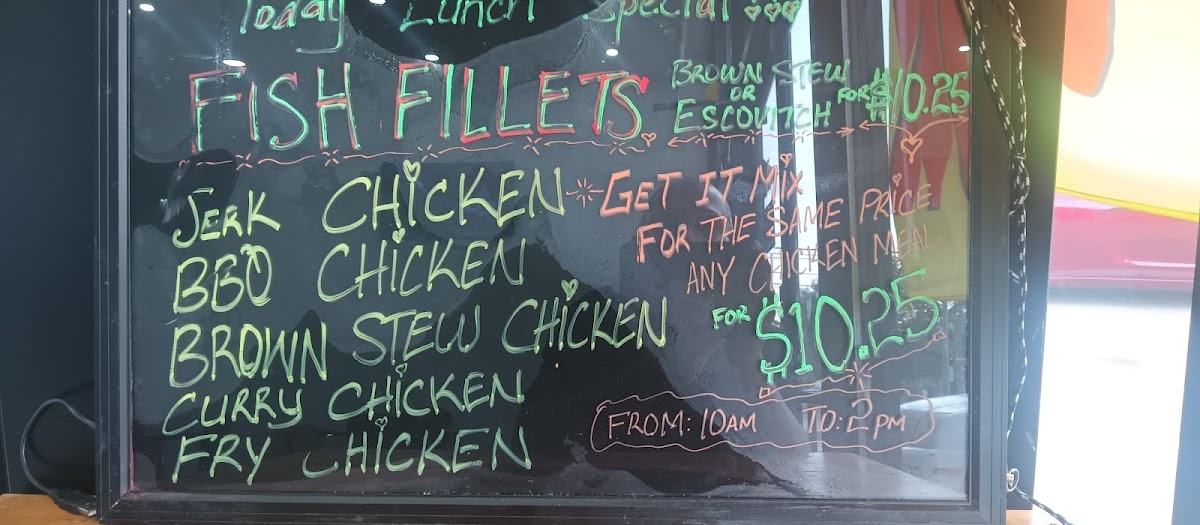 Today Lunch Special
FISH FILLETS
BROWN STEW
OR
ESCOVITCH
FOR $10.25
JERK CHICKEN
GET IT MIX
FOR THE SAME PRICE
ANY CHICKEN MEAL
BBQ CHICKEN
BROWN STEW CHICKEN
FOR $10.25
CURRY CHICKEN
FROM: 10AM TO: 2PM
FRY CHICKEN